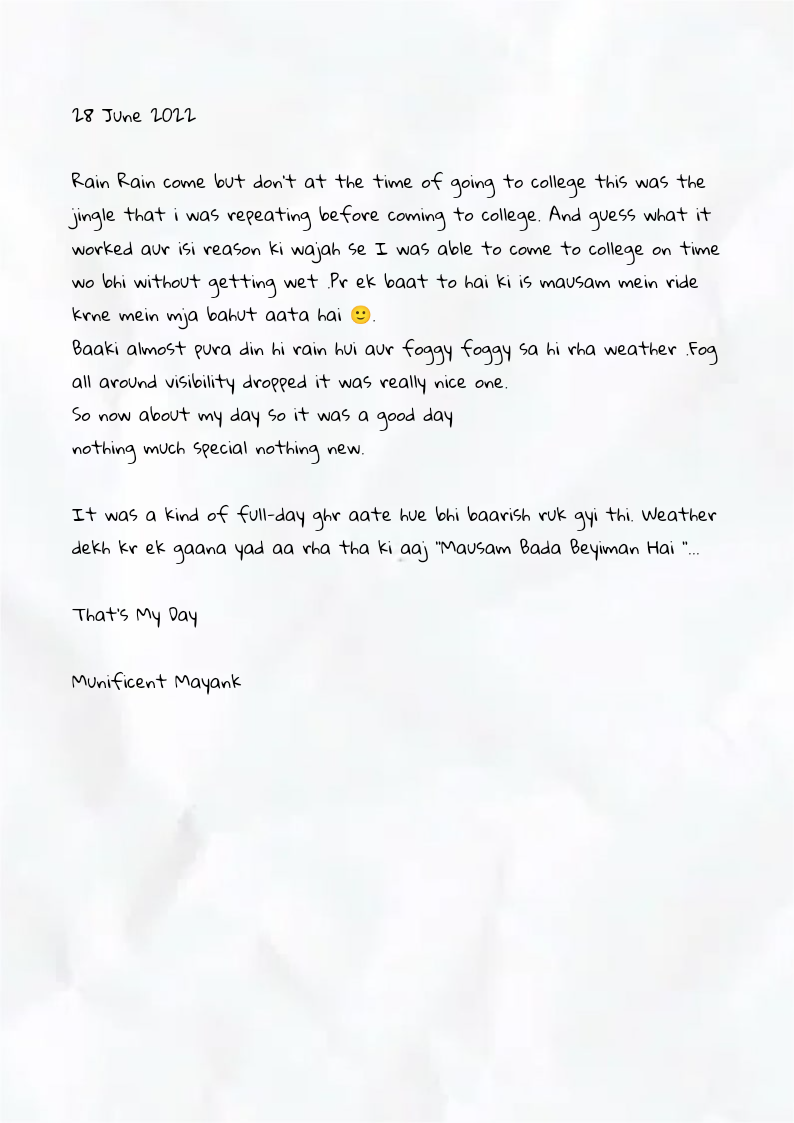 28 June 2022
Rain Rain come but don't at the time of going to college this was the
jingle that i was repeating before coming to college. And guess what it
worked aur isi reason ki wajah se I was able to come to college on time
wo bhi without getting wet .Pr ek baat to hai ki is mausam mein ride
krne mein mja bahut aata hai 🙂.
Baaki almost pura din hi rain hui aur foggy foggy sa hi rha weather .Fog
all around visibility dropped it was really nice one.
So now about my day so it was a good day
nothing much special nothing new.
It was a kind of full-day ghr aate hue bhi baarish ruk gyi thi. Weather
dekh kr ek gaana yad aa rha tha ki aaj "Mausam Bada Beyiman Hai "...
That's My Day
Munificent Mayank